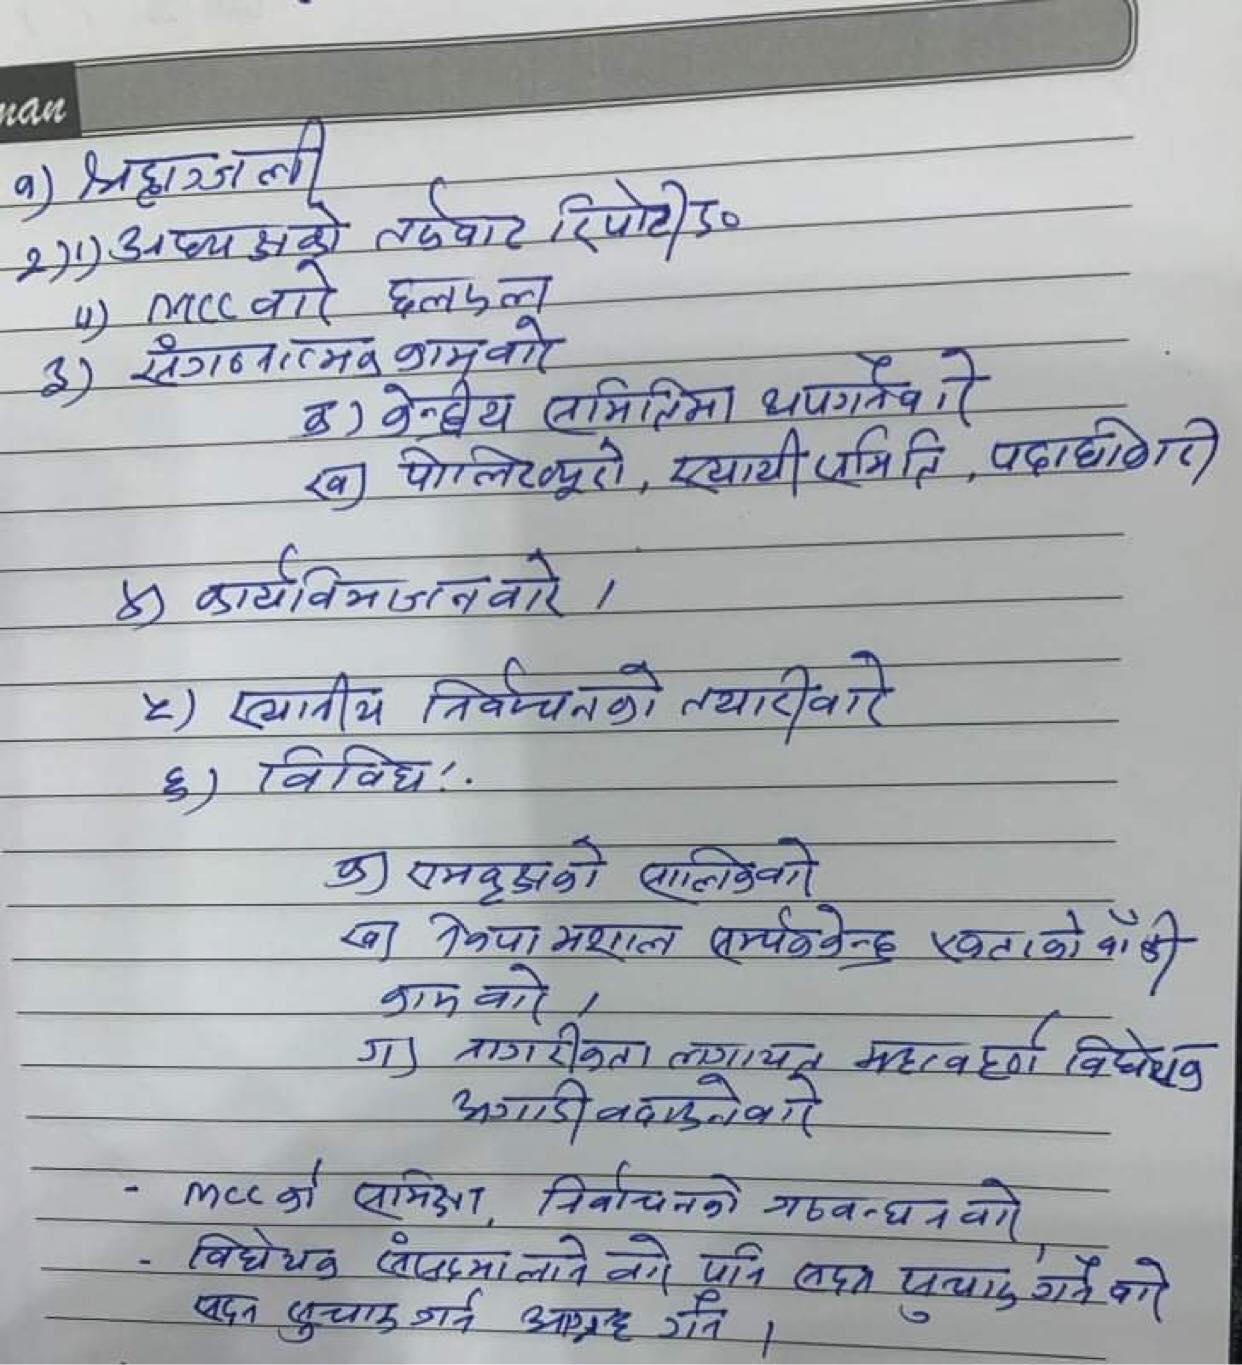 man
१) श्रद्धाञ्जली
२) i) अध्यक्षको तर्फबाट रिपोर्टीङ०
ii) MCC बारे छलफल
३) संगठनात्मक कामबारे
क) केन्द्रीय समितिमा थपगर्नेबारे
ख) पोलिटव्यूरो, स्थायी समिति, पदाधीकारी
४) कार्यविभाजन बारे ।
५) स्थानीय निर्वाचनको तयारीबारे
६) विविध :.
क) रामवृक्षको सालिकबारे
ख) नेकपा मशाल सम्पर्ककेन्द्र एकताको बाँकी
काम बारे ।
ग) नागरीकता लगायत महत्वपूर्ण विधेयक
अगाडी बढाउनेबारे
- MCC को समिक्षा, निर्वाचनको गठबन्धन बारे
- विधेयक संसदमा लाने बारे पनि सदन सुचारु गर्ने बारे
सदन सुचारु गर्न आग्रह गर्ने ।